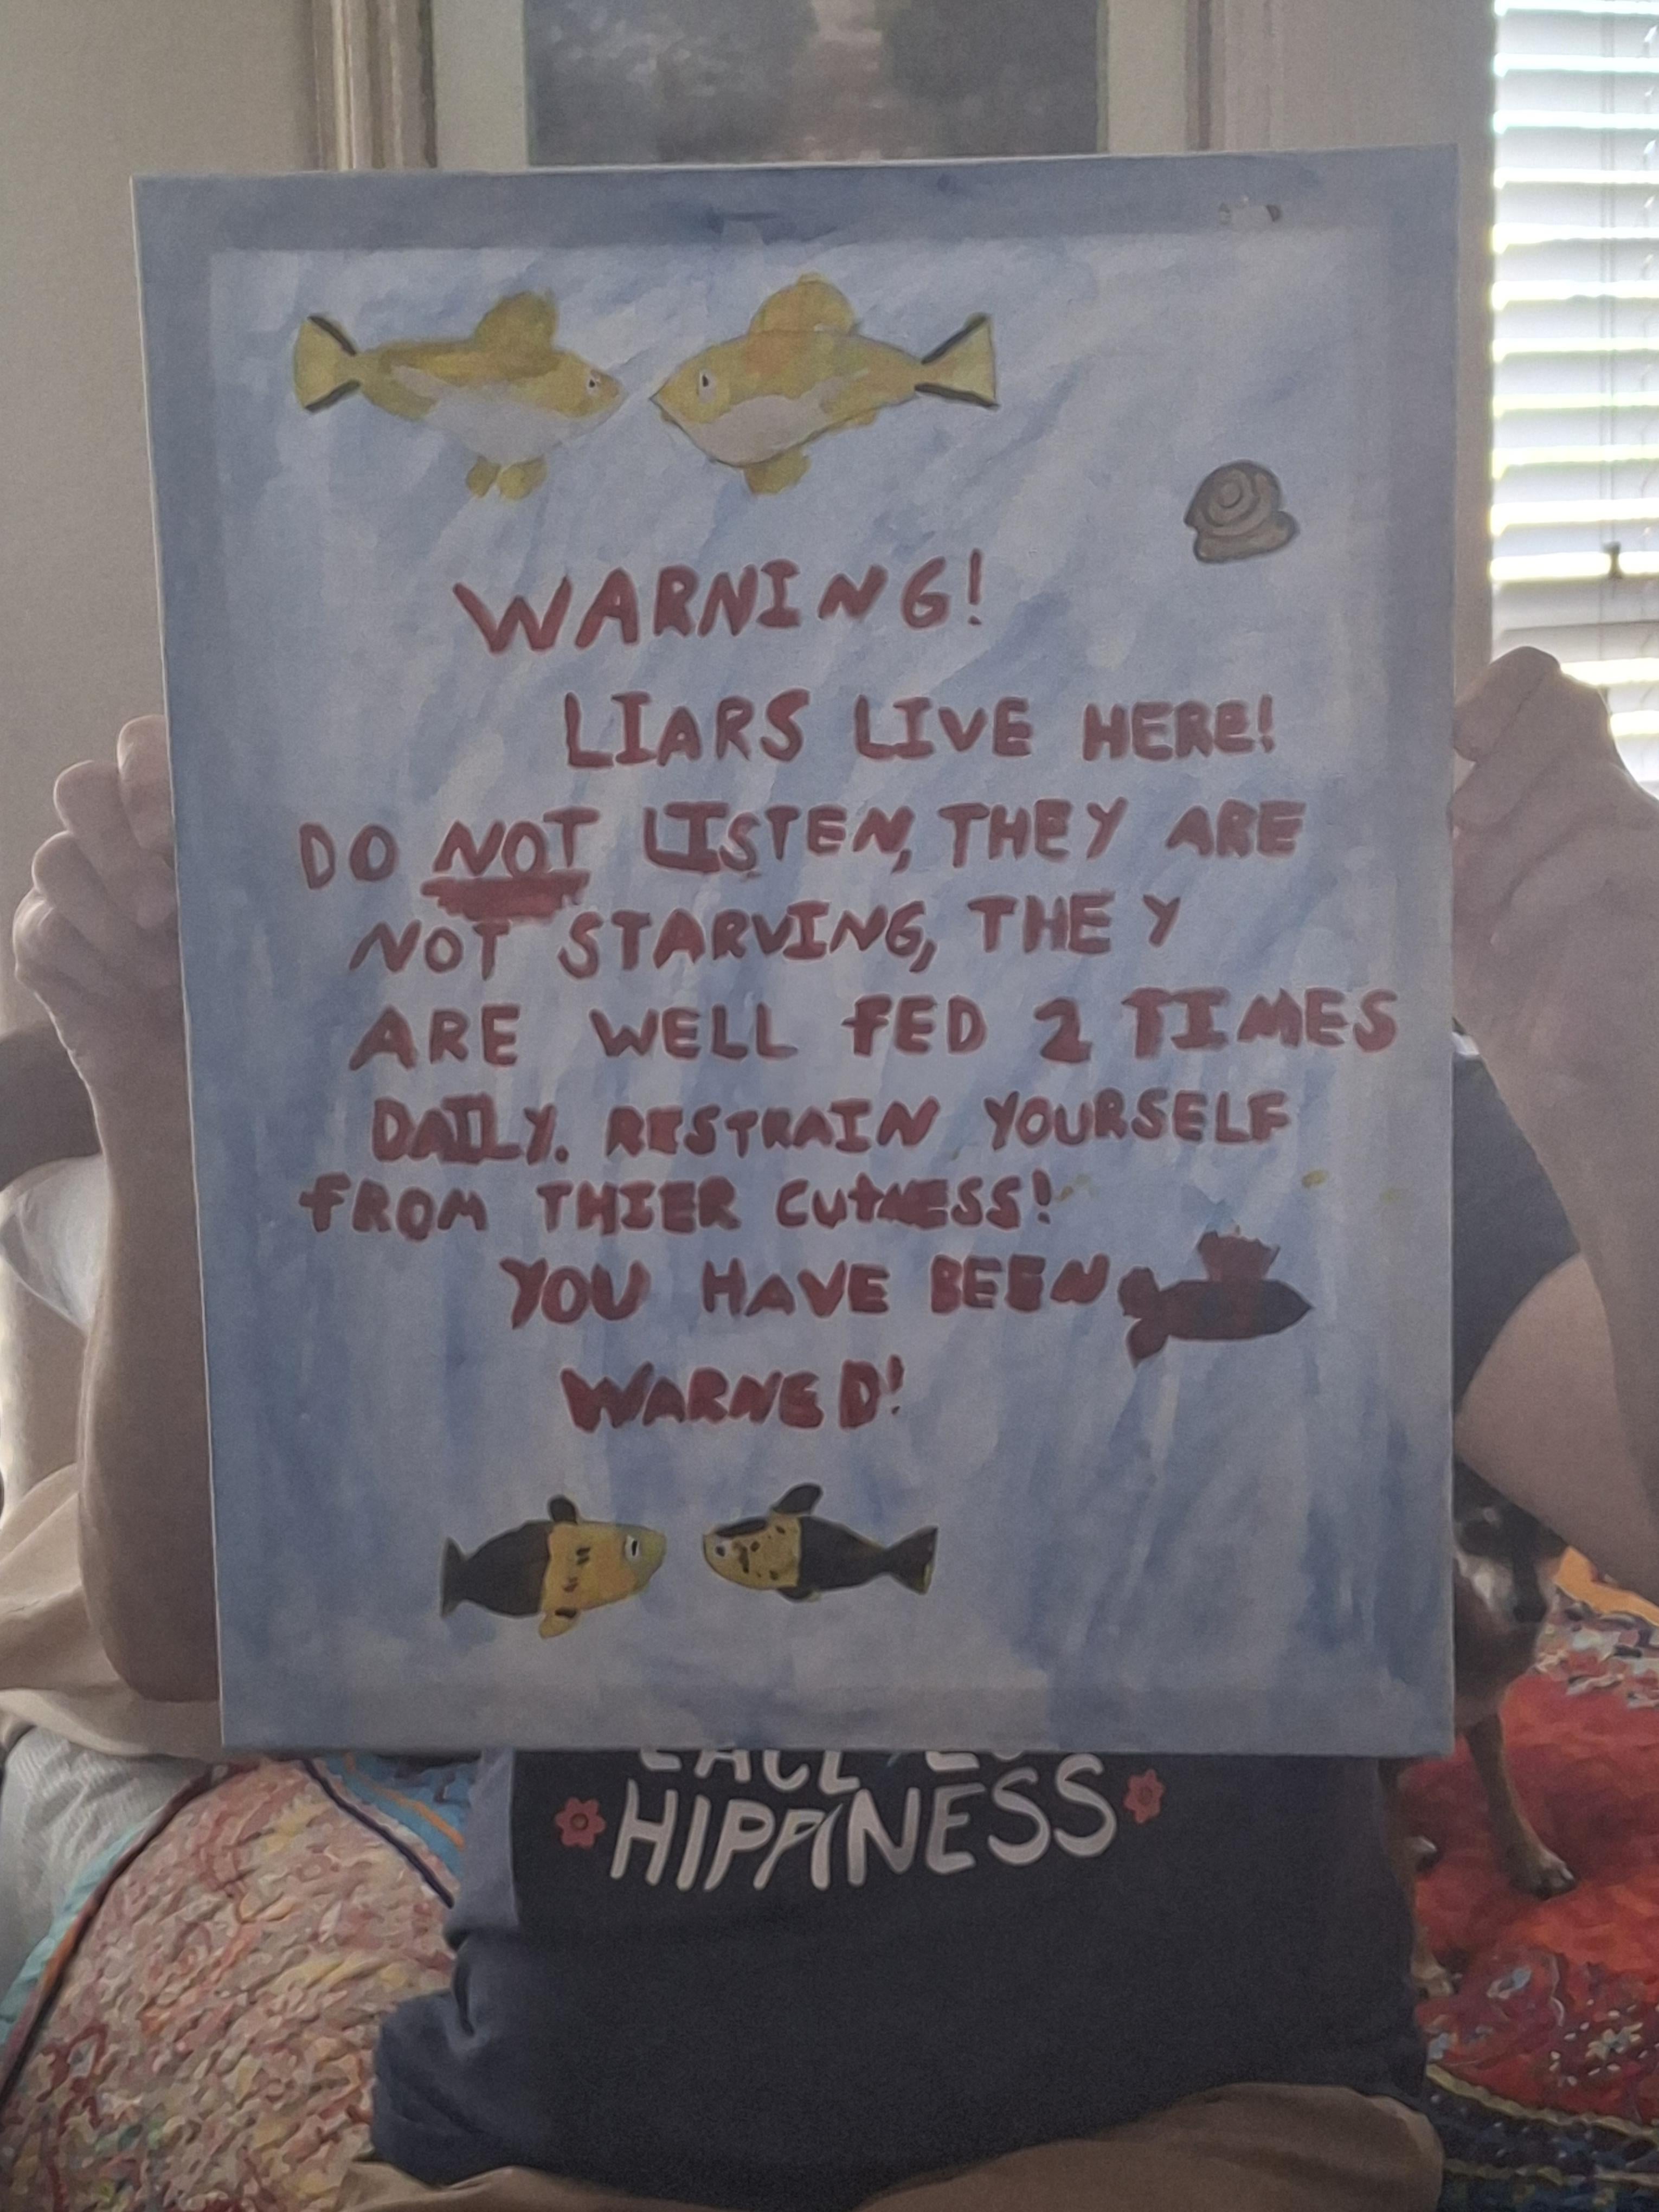 WARNING!
LIARS LIVE HERE!
DO NOT LISTEN, THEY ARE
NOT STARVING, THEY
ARE WELL FED 2 TIMES
DAILY. RESTRAIN YOURSELF
FROM THIER CUTNESS!
YOU HAVE BEEN
WARNED!
HIPPINESS